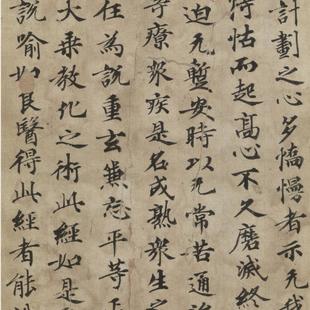 計劃之心多憍慢者示无我
恃怙而起高心不久磨滅終
迫无蹔安時以无常苦通治
等療衆疾是名成熟衆生之
在為說重玄蕪忘平等下
大乗教化之術此經如是
說喻如良醫得此經者能